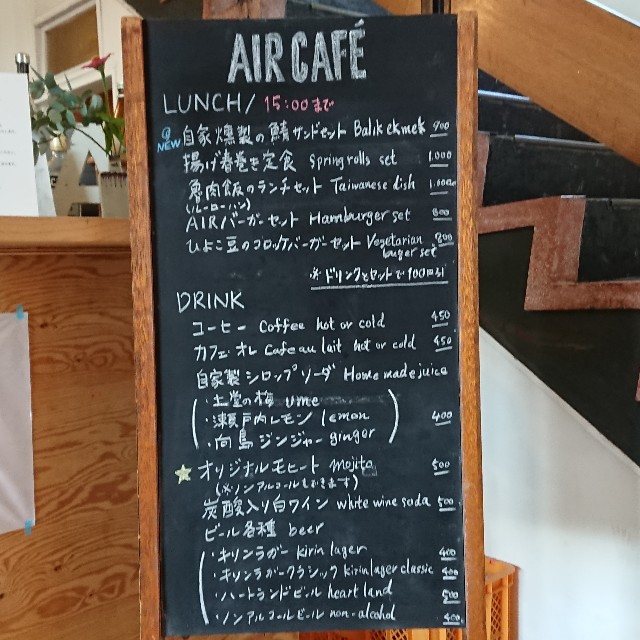 AIR CAFÉ
LUNCH / 15:00まで
NEW 自家燻製の鯖サンドセット Balik ekmek 900
揚げ春巻き定食 Spring rolls set 1.000
魯肉飯のランチセット Taiwanese dish 1.000
(ルーローハン)
AIRバーガーセット Hamburger set 800
ひよこ豆のコロッケバーガーセット Vegetarian burger set 900
※ドリンクとセットで100円引
DRINK
コーヒー Coffee hot or cold 450
カフェオレ Cafe au lait hot or cold 450
自家製シロップソーダ Home made juice
・土堂の梅 ume
・瀬戸内レモン lemon 400
・向島ジンジャー ginger
オリジナルモヒート mojito 500
(※ノンアルコールもできます)
炭酸入り白ワイン white wine soda 500
ビール各種 beer
・キリンラガー kirin lager 400
・キリンラガークラシック kirin lager classic 400
・ハートランドビール heart land 500
・ノンアルコールビール non-alcohol 400